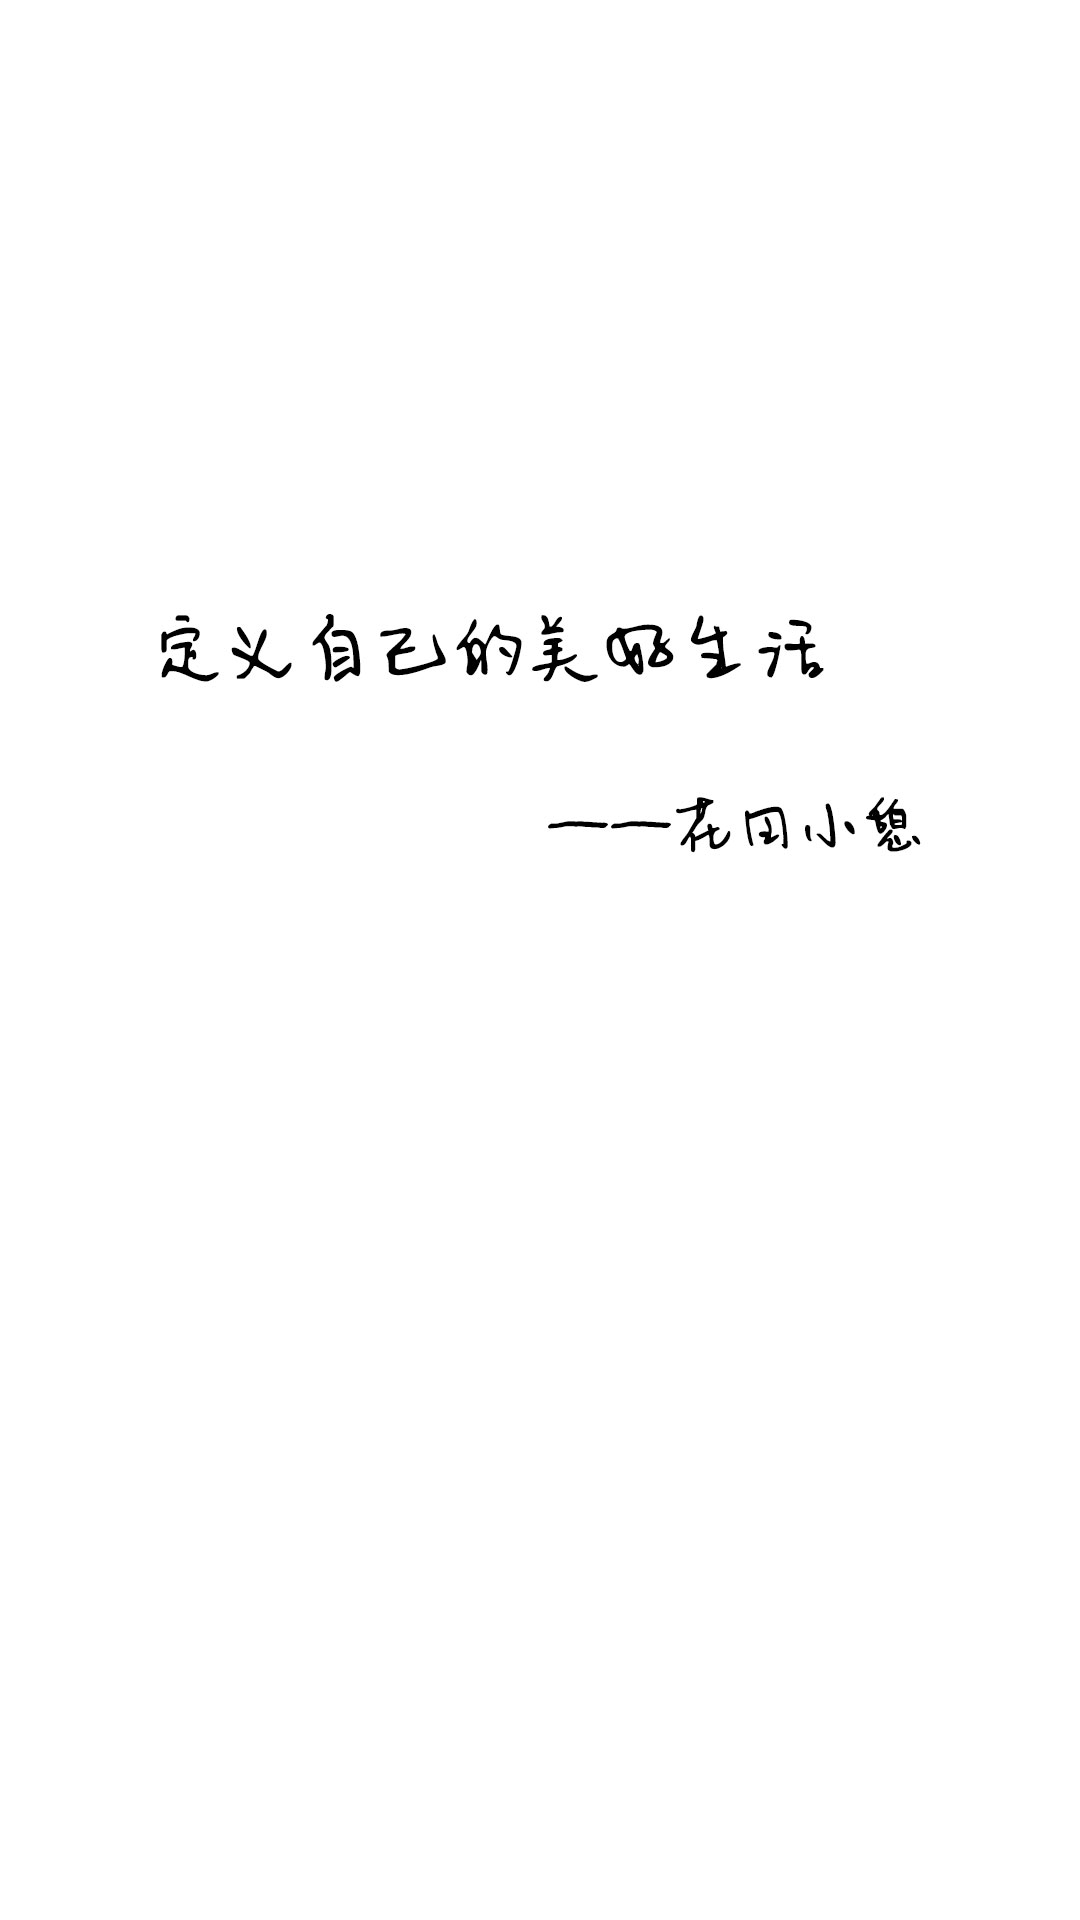 定义自己的美好生活
——花田小憩